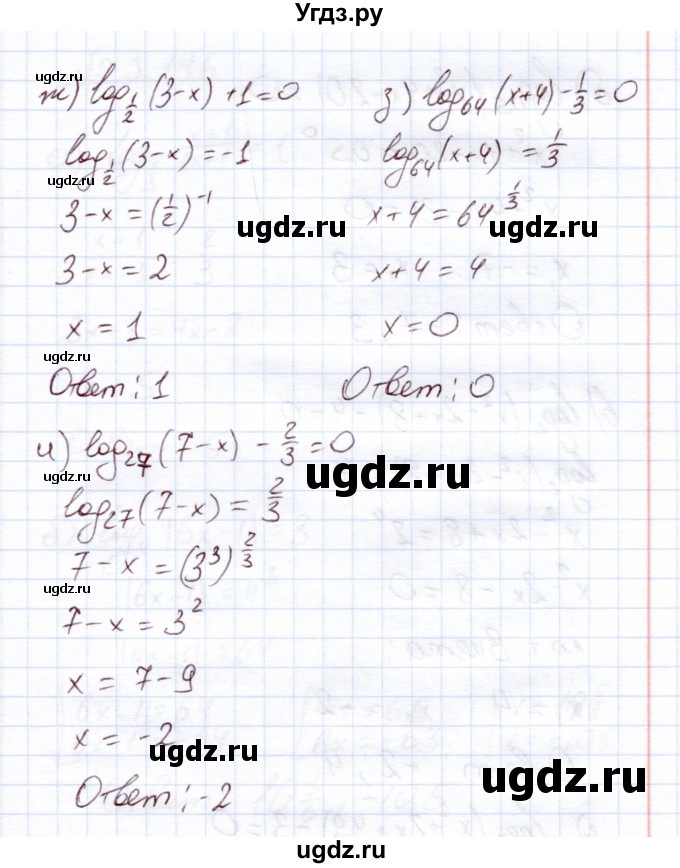 Угдз.ру
ж) log_{1/2} (3-x) + 1 = 0
log_{1/2} (3-x) = -1
3-x = (1/2)^{-1}
3-x = 2
x = 1
Ответ: 1
з) log_{64} (x+4) - 1/3 = 0
log_{64} (x+4) = 1/3
x+4 = 64^{1/3}
x+4 = 4
x = 0
Ответ: 0
и) log_{27} (7-x) - 2/3 = 0
log_{27} (7-x) = 2/3
7-x = (3^3)^{2/3}
7-x = 3^2
x = 7-9
x = -2
Ответ: -2
ugdz.ru
ugdz.ru
ugdz.ru
ugdz.ru
ugdz.ru
ugdz.ru
ugdz.ru
ugdz.ru
ugdz.ru
ugdz.ru
ugdz.ru
ugdz.ru